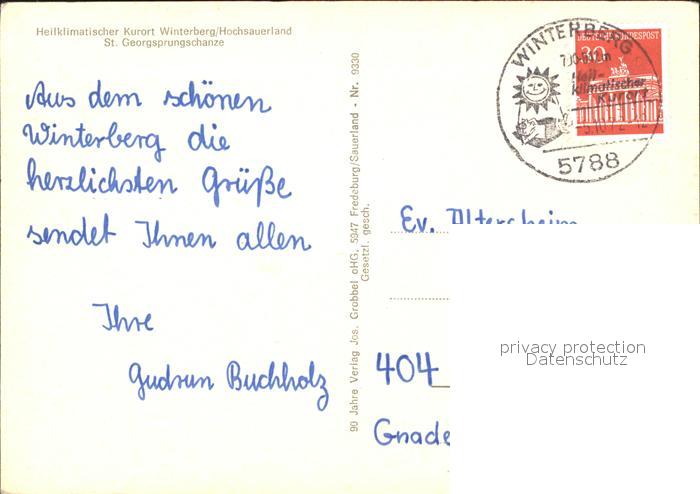 Heilklimatischer Kurort Winterberg/Hochsauerland
St. Georgsprungschanze
Aus dem schönen
Winterberg die
herzlichsten Grüße
sendet Ihnen allen
Ihre
Gudrun Buchholz
90 Jahre Verlag Jos. Grobbel oHG, 5947 Fredeburg/Sauerland - Nr. 9330
Gesetzl. gesch.
WINTERBERG
Heil-
klimatischer
Kurort
5788
DEUTSCHE BUNDESPOST
30
Ev. Altersheim
404
Gnade
privacy protection
Datenschutz